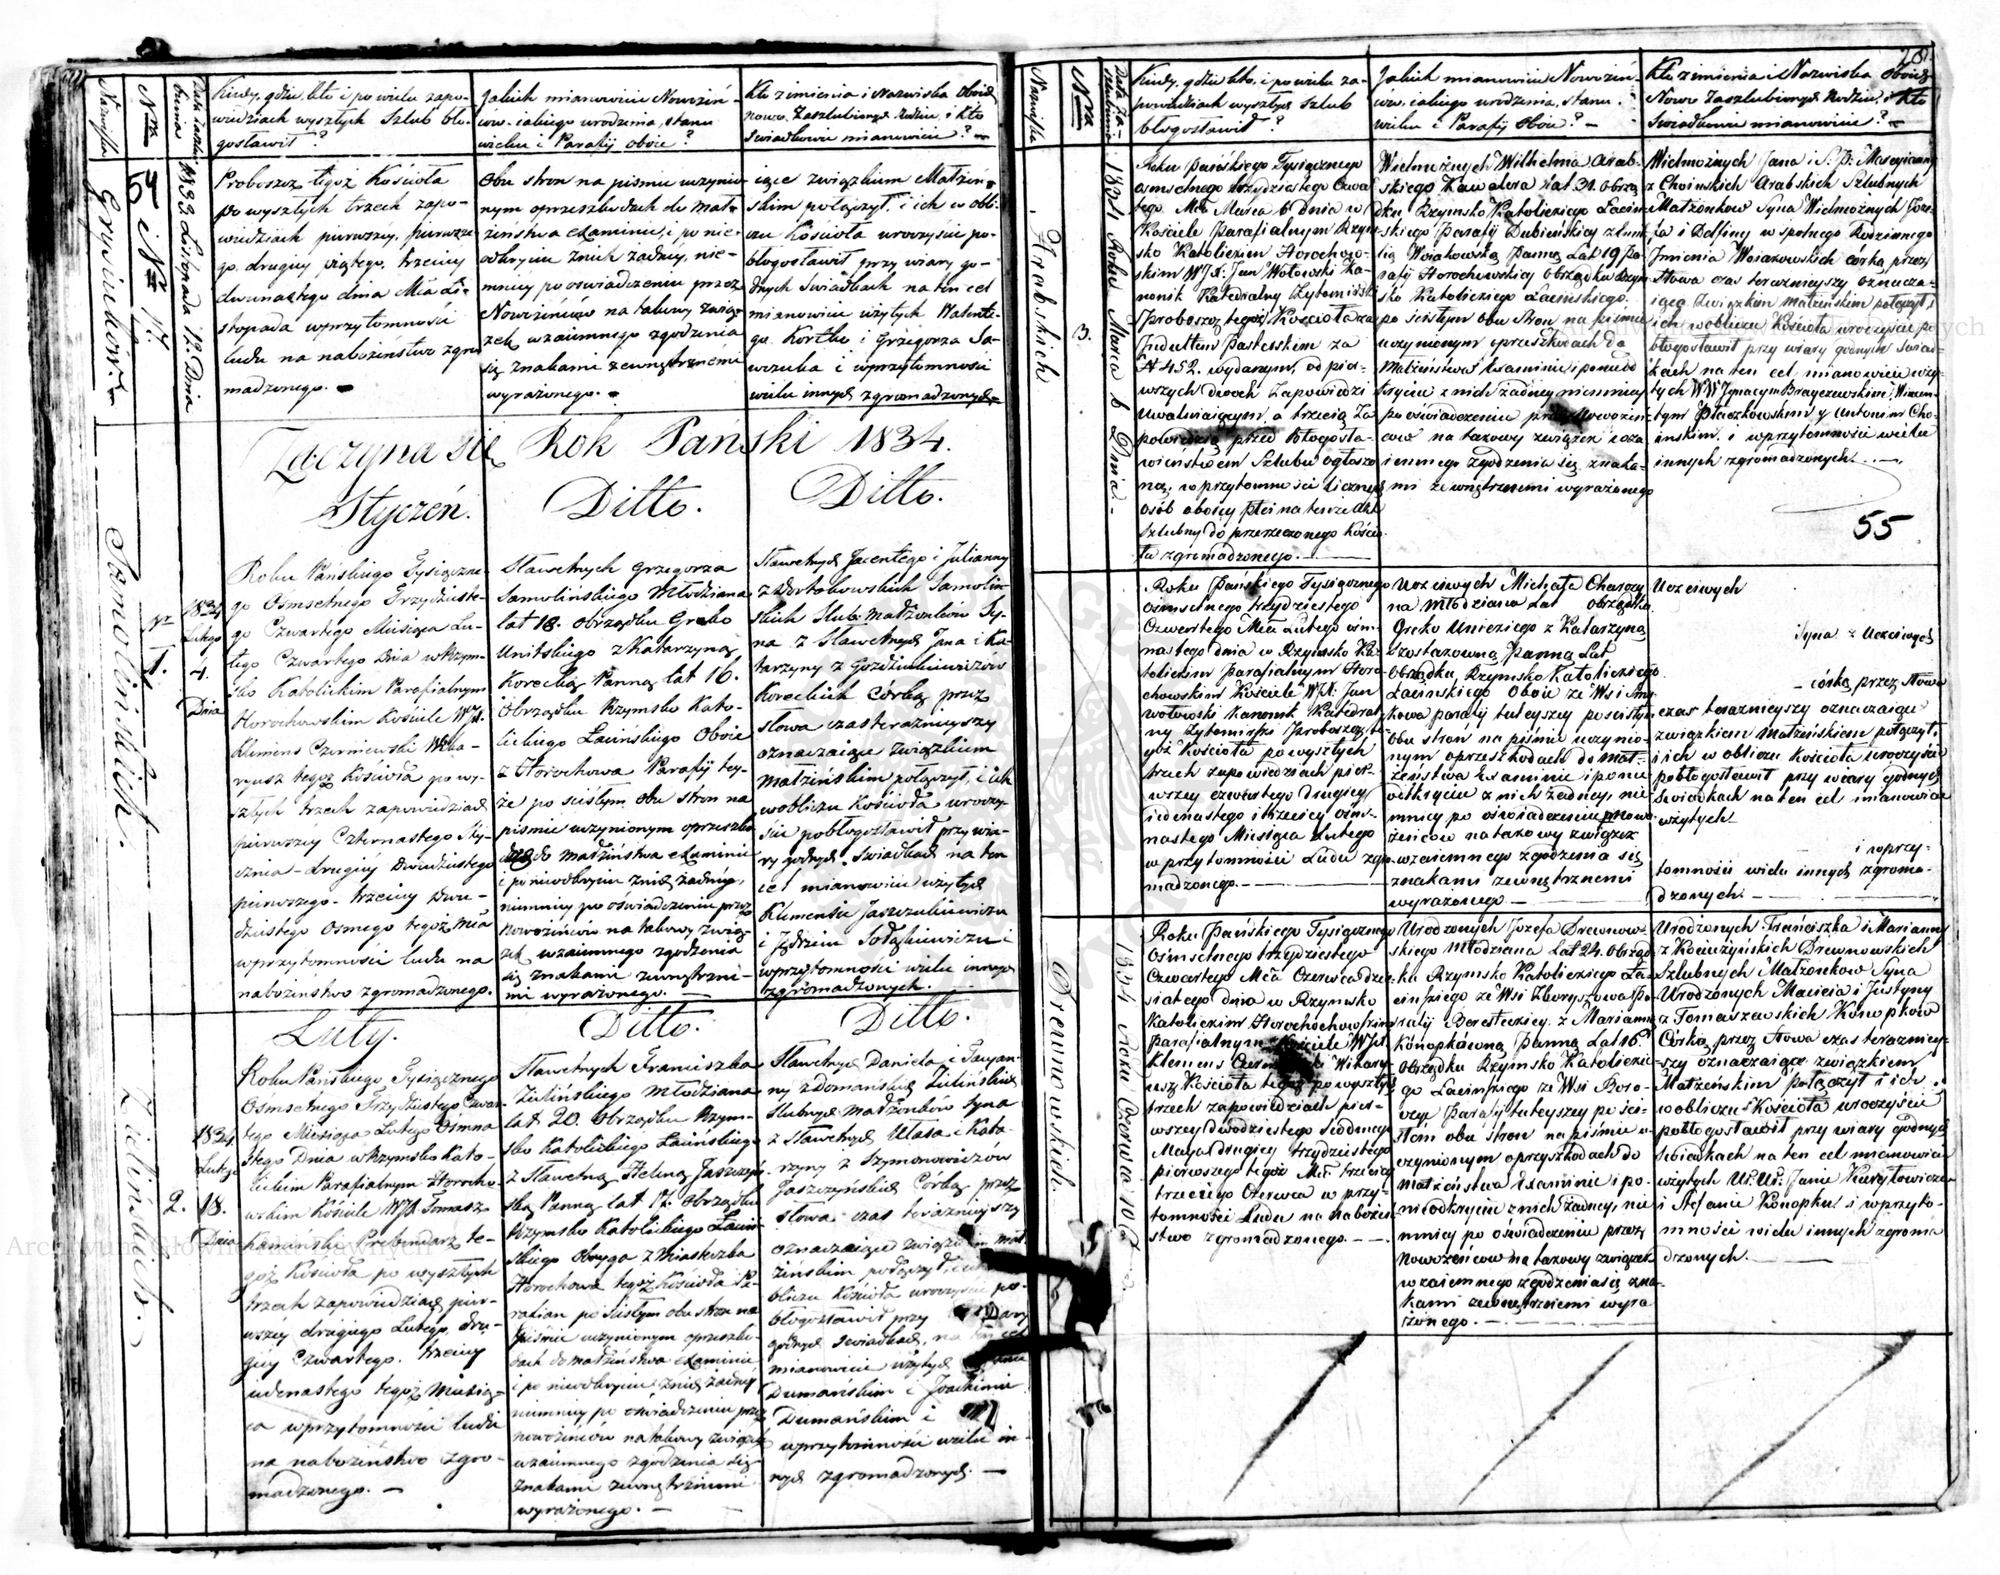 Nazwiska
Nra
Kiedy, gdzie, kto i po wielu zapo-
wiedziach wyszłych Szlub bło-
gosławił?
Jakich mianowicie Nowożeń-
ców, jakiego urodzenia, stanu
wieku i Parafij oboie?
Kto z imienia i Nazwiska
nowo Zaszlubionych Rodzice, i kto
Swiadkowie mianowicie?
54
1833 Listopada 12. Dnia
Proboszcz tegoż Kościoła
po wyszłych trzech zapo-
wiedziach pierwszey,
go drugiey piątego, trzeciey
dwunastego dnia Mca Li-
stopada w przytomności
ludu na nabożeństwo zgro
madzonego.
Obu stron na pismie uczynio-
nym oprzeszkodach do mał-
żeństwa examinie, i po nie-
odkryciu żadney, nie-
mniey po oświadczeniu przez
Nowożeńców na takowy zwią-
zek wzaiemnego zgodzenia
się znakami zewnętrznemi
wyrażonego.
iące związkiem Małżeń-
skim połączył, i ich w obli-
czu Kościoła uroczyście po-
błogosławił przy wiary go-
dnych Swiadkach na ten cel
mianowicie użytych Walente-
go i Grzegorza
i w przytomności
wielu innych zgromadzonych
Zaczyna się Rok Pański 1834.
Styczeń. Ditto. Ditto.
Samolinskich.
1.
1834
Lutego
4.
Dnia
Roku Pańskiego Tysiączne-
go Osmsetnego Trzydzieste-
go Czwartego Miesiąca Lu-
tego Czwartego Dnia w Rzym-
sko Katolickim Parafialnym
Horochowskim Kościele WJX.
Klimens Czerniewski Wika-
ryusz tegoż Kościoła po wy-
szłych trzech zapowiedziach
pierwszey Czternastego Sty-
cznia - drugiey Dwudziestego
pierwszego - trzeciey Dwu-
dziestego Osmego tegoż Mca
w przytomności ludu na
nabożeństwo zgromadzonego.
Sławetnych Grzegorza
Samolińskiego Młodziana
lat 18. obrządku Greko
Unitskiego z Katarzyną
Korecką Panną lat 16.
Obrządku Rzymsko Kato-
lickiego Łacinskiego Oboie
z Horochowa Parafij tey-
że po scisłym obu stron na
pismie uczynionym oprzeszko
dach do małżeństwa examinie
i po nieodkryciu żadney,
niemniey po oświadczeniu przez
Nowożeńców na takowy zwią-
zek wzaiemnego zgodzenia
się znakami zewnętrzne-
mi wyrażonego.
Sławetnych Jacentego i Julianny
Samolin-
skich Szlub: małżonków Sy-
na z Sławetnych Jana i Ka-
tarzyny z
Koreckich Córką przez
słowa czas teraznieyszy
oznaczaiące związkiem
małżeńskim połączył, i ich
w obliczu Kościoła uroczy-
ście pobłogosławił przy wia-
ry godnych Swiadkach na ten
cel mianowicie użytych
Klimensie
i Jędrzeiu
w przytomności wielu innych
zgromadzonych.
Luty. Ditto. Ditto.
Zielińskich.
2.
1834
Lutego
18.
Dnia
Roku Pańskiego Tysiącznego
Osmsetnego Trzydziestego Czwar-
tego Miesiąca Lutego Osmna
stego Dnia w Rzymsko Kato-
lickim Parafialnym Horocho-
wskim Kościele WJX. Tomasz
Kamiński Prebendarz te-
goż Kościoła po wyszłych
trzech zapowiedziach pier-
wszey drugiego Lutego, dru-
giey Czwartego, trzeciey
iedenastego tegoż Miesią-
ca w przytomności ludu
na nabożeństwo zgro-
madzonego.
Sławetnych Franciszka
Zielińskiego Młodziana
lat 20. Obrządku Rzym-
sko Katolickiego Łacinskiego
z Sławetną Heleną Jaszczyń
ską Panną lat 17. Obrządku
Rzymsko Katolickiego Łacin-
skiego Oboyga z Miasteczka
Horochowa tegoż Kościoła Pa-
rafian po scisłym obu stron na
pismie uczynionym oprzeszko-
dach do małżeństwa examinie
i po nieodkryciu żadney
niemniey po oświadczeniu przez
nowożeńców na takowy związek
wzaiemnego zgodzenia się
znakami zewnętrznemi
wyrażonego.
Sławetnych Daniela i Taцyan-
ny z Domańskich Zielińskich
Szlubnych małżonków Syna
z Sławetnych i Kata-
rzyny z Szymonowiczów
Jaszczyńskich Córką przez
słowa czas teraznieyszy
oznaczaiące związkiem mał-
żeńskim połączył,
bliczu Kościoła uroczyście po-
błogosławił przy wiary
godnych Swiadkach na ten cel
mianowicie użytych
Dumańskim i Joachimie
Dumańskim i
w przytomności wielu in-
nych zgromadzonych.
Nazwiska
Nra
Kiedy, gdzie kto, i po wielu za-
powiedziach wyszłych Szlub
błogosławił?
Jakich mianowicie Nowożeń-
ców, iakiego urodzenia, stanu
wieku i Parafij Oboie?
Kto z imienia i Nazwiska
Nowo Zaszlubionych Rodzice, i Kto
Swiadkowie mianowicie?
Arabskich
3.
1834 Roku Marca 6 Dnia.
Roku Pańskiego Tysiącznego
osmsetnego trzydziestego Czwar
tego Mca Marca 6 dnia w
Kościele Parafialnym Rzym
sko Katolickim Horochow-
skim WJX. Jan Wołowski Ka-
nonik Katedralny Żytomirski
Proboszcz tegoż Kościoła za
Indultem Pasterskim za
N 452. wydanym, od pier-
wszych dwoch Zapowiedzi
Uwalniaiącym, a trzecią Za
powiedzią przed błogosła-
wieństwem Szlubu ogłoszo
ną, w przytomności licznych
osób oboiey płci na ten akt
Szlubny do przerzeczonego Kościo
ła zgromadzonego.
Wielmożnych Wilhelma Arab-
skiego Kawalera Lat 31. obrzą
dku Rzymsko Katolickiego Łacin-
skiego Parafij Dubieńskiey z
lią Woiakowską Panną Lat 19 Pa-
rafij Horochowskiey obrządku Rzym
sko Katolickiego Łacińskiego.
po scisłym Obu Stron na pismie
uczynionym oprzeszkodach do
Małżeństwa Examinie i ponieod
kryciu z nich żadney niemniey
po oświadczeniu przez Nowożeń
ców na takowy związek wza
iemnego zgodzenia się znaka-
mi zewnętrznemi wyrażonego
Wielmożnych Jana i S. P. Maryianny
z Choinskich Arabskich Szlubnych
Małżonków Syna Wielmożnych Joze-
fa i Delfiny w spolnego Rodzinnego
Jmienia Woiakowskich córką przez
Słowa czas teraznieyszy oznacza-
iącą związkim małżeńskim połączył i
ich w obliczu Kościoła uroczyście po
błogosławił przy wiary godnych Swiad-
kach na ten cel mianowicie uży-
tych WW Jgnacym Wincen-
tym Płaczkowskim y Antonim Cho-
inskim. i w przytomności wielu
innych zgromadzonych.
55
Roku Pańskiego Tysiącznego
Osmsetnego trzydziestego
Czwartego Mca Lutego osm-
nastego dnia w Rzymsko Ka
tolickim Parafialnym Horo-
chowskim Kościele WJX. Jan
Wołowski Kanonik Katedral
ny Żytomirski Proboszcz te-
goż Kościoła po wyszłych
trzech zapowiedziach pier-
wszey czwartego drugiey
iedenastego i trzeciey osm-
nastego Miesiąca Lutego
w przytomności Ludu zgro-
madzonego.
Uczciwych Michała
na Młodziana Lat obrządku
Greko Unickiego z Katarzyną
Panną Lat
Obrządku Rzymsko Katolickiego
Łacińskiego Oboie ze Wsi
kowa parafij tuteyszey po scisłym
Obu stron na piśmie uczynio-
nym oprzeszkodach do mał-
żeństwa Examinie i ponie
odkryciu z nich żadney, nie
mniey po oświadczeniu przez nowo
żeńców na takowy związek
wzaiemnego zgodzenia się
znakami zewnętrznemi
wyrażonego
Uczciwych
Syna z Uczciwych
córką przez słowa
czas teraznieyszy oznaczaiące
związkiem małżeńskim połączył,
i ich w obliczu Kościoła uroczyście
pobłogosławił przy wiary godnych
Swiadkach na ten cel mianowicie
użytych
i w przy-
tomności wielu innych zgroma-
dzonych.
Drewnowskich.
1834 Roku Czerwca 10 Da
Roku Pańskiego Tysiącznego
Osmsetnego trzydziestego
Czwartego Mca Czerwca dzie-
siątego dnia w Rzymsko
Katolickim Horochowskim
Parafialnym Kościele WJX.
Klemens Wikary-
usz Kościoła tegoż po wyszłych
trzech zapowiedziach pier-
wszey dwudziestego siódmego
Maya drugiey trzydziestego
pierwszego tegoż Mca trzeciey
trzeciego Czerwca w przy-
tomności Ludu na nabożeń
stwo zgromadzonego.
Urodzonych Józefa Drewnow-
skiego Młodziana Lat 24. obrząd
ku Rzymsko Katolickiego Ła-
cińskiego ze Wsi Zboryszowa Pa-
rafij Beresteckiey z Marianną
Konopkówną Panną Lat 16
obrządku Rzymsko Katolickie
go Łacińskiego ze Wsi
Parafij tuteyszey po ści-
słém obu stron na piśmie u-
czynionym oprzyszkodach do
małżeństwa Examinie i po-
nieodkryciu z nich żadney, nie
mniey po oświadczeniu przez
Nowożeńców na takowy związek
wzaiemnego zgodzenia się zna-
kami zewnętrznemi wyra
żonego.
Urodzonych Franciszka i Marianny
Drewnowskich
Szlubnych Małżonków Syna
Urodzonych Macieia i Justyny
z Tomaszewskich Konopków
Córką przez słowa czas teraznie-
szy oznaczaiące związkiem
Małżeńskim połączył i ich
w obliczu Kościoła uroczyście
pobłogosławił przy wiary godnych
Swiadkach na ten cel mianowicie
użytych Ur. Ur. Janie
i Stefanie Konopku i w przyto-
mności wielu innych zgroma
dzonych.